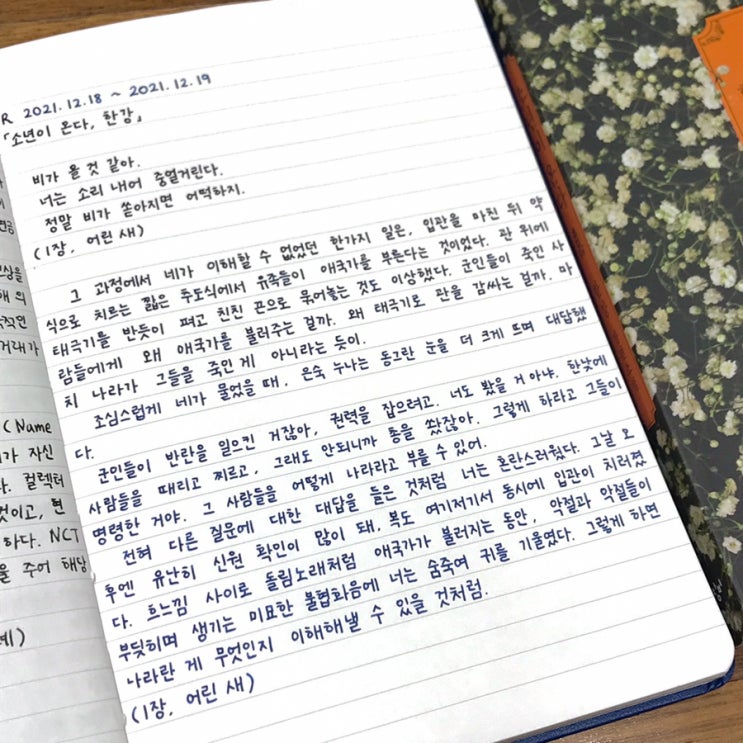 연금
상을
의
적인
거래가
(Name
가 자신
컬렉터
것이고, 현
하다. NCT
을 주어 해당
R 2021.12.18 ~ 2021.12.19
「소년이 온다, 한강」
비가 올 것 같아.
너는 소리 내어 중얼거린다.
정말 비가 쏟아지면 어떡하지.
(1장, 어린 새)
그 과정에서 네가 이해할 수 없었던 한가지 일은, 입관을 마친 뒤 약
식으로 치르는 짧은 추도식에서 유족들이 애국가를 부른다는 것이었다. 관 위에
태극기를 반듯이 펴고 친친 끈으로 묶어놓는 것도 이상했다. 군인들이 죽인 사
람들에게 왜 애국가를 불러주는 걸까. 왜 태극기로 관을 감싸는 걸까. 마
치 나라가 그들을 죽인 게 아니라는 듯이.
조심스럽게 네가 물었을 때, 은숙 누나는 동그란 눈을 더 크게 뜨며 대답했
다.
군인들이 반란을 일으킨 거잖아, 권력을 잡으려고. 너도 봤을 거 아냐. 한낮에
사람들을 때리고 찌르고, 그래도 안되니까 총을 쐈잖아. 그렇게 하라고 그들이
명령한 거야. 그 사람들을 어떻게 나라라고 부를 수 있어.
전혀 다른 질문에 대한 대답을 들은 것처럼 너는 혼란스러웠다. 그날 오
후엔 유난히 신원 확인이 많이 돼, 복도 여기저기서 동시에 입관이 치러졌
다. 흐느낌 사이로 돌림노래처럼 애국가가 불러지는 동안, 악절과 악절들이
부딪히며 생기는 미묘한 불협화음에 너는 숨죽여 귀를 기울였다. 그렇게 하면
나라란 게 무엇인지 이해해낼 수 있을 것처럼.
(1장, 어린 새)